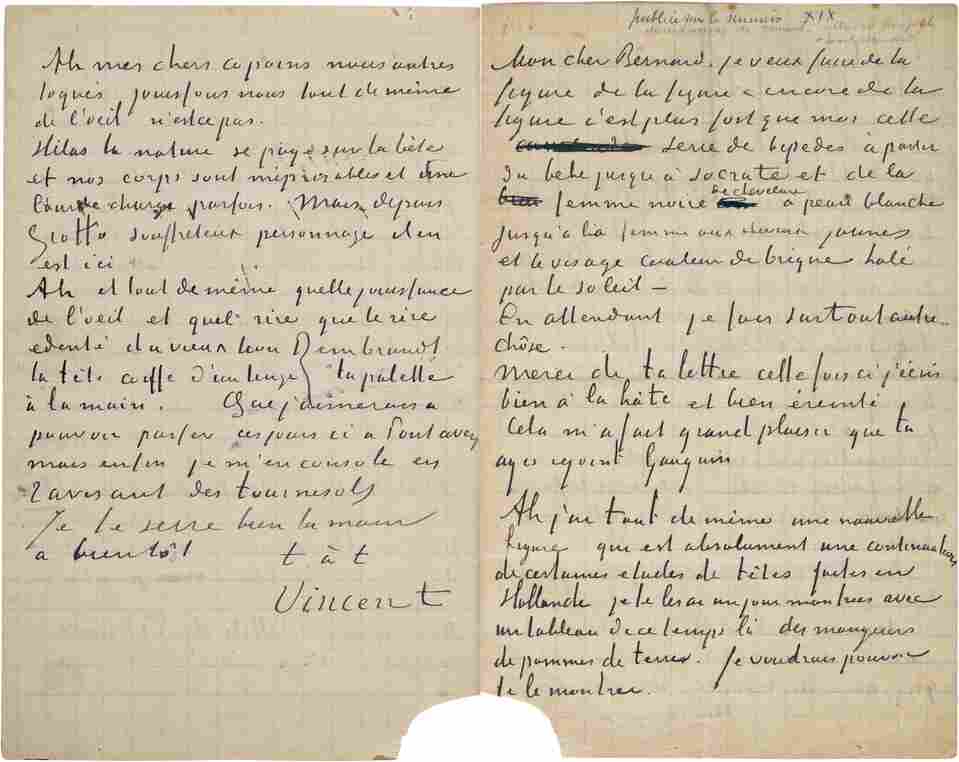 Ah mes chers copains nous autres
toqués jouissons nous tout de même
de l'oeil n'est ce pas.
Hélas la nature se paye sur la bête
et nos corps sont méprisables et une
lourde charge parfois. Mais depuis
Giotto souffreteux personnage il en
est ici
Ah et tout de même quelle jouissance
de l'oeil et quel rire que le rire
édenté du vieux lion Rembrandt
la tête coiffé d'un linge la palette
à la main. Que j'aimerais à
pouvoir passer ces jours ci à Pont aven
mais enfin je m'en console en
ravisant des tournesols
Je te serre bien la main
à bientôt
t. à t
Vincent
publiée sur le XIX
Mon cher Bernard. je veux faire de la
figure de la figure & encore de la
figure c'est plus fort que moi cette
serie de bipèdes à partir
du bebe jusqu'à Socrate et de la
femme noire de chevelure à peau blanche
jusqu'à la femme aux cheveux jaunes
et le visage couleur de brique halé
par le soleil –
En attendant je fais surtout autre
chôse.
Merci de ta lettre cette fois ci j'écris
bien à la hâte et bien éreinté
Cela m'a fait grand plaisir que tu
ayes rejoint Gauguin
Ah j'ai tout de même une nouvelle
figure qui est absolument une continuation
de certaines etudes de têtes faites en
Hollande je te les ai un jour montrées avec
un tableau de ce temps là des mangeurs
de pommes de terres. Je voudrais pouvoir
te le montrer.